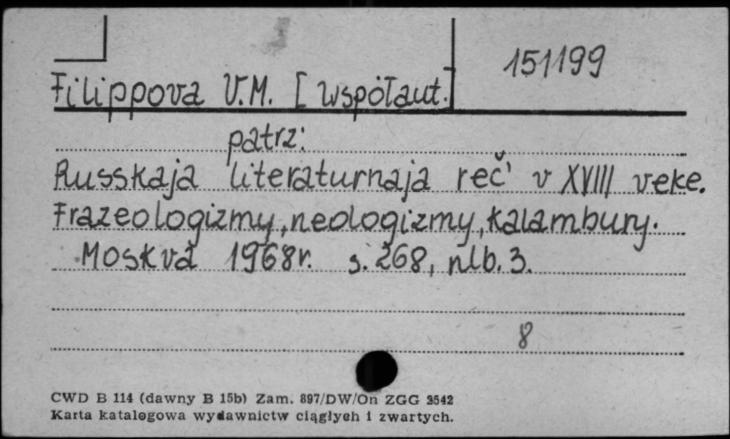 151199
Filippova V.M. [współaut.]
patrz:
Russkaja literaturnaja reč' v XVIII veke.
Frazeologizmy, neologizmy, kalambury.
Moskva 1968r. s. 268, nlb. 3.
8
CWD B 114 (dawny B 15b) Zam. 897/DW/On ZGG 3542
Karta katalogowa wydawnictw ciągłych i zwartych.